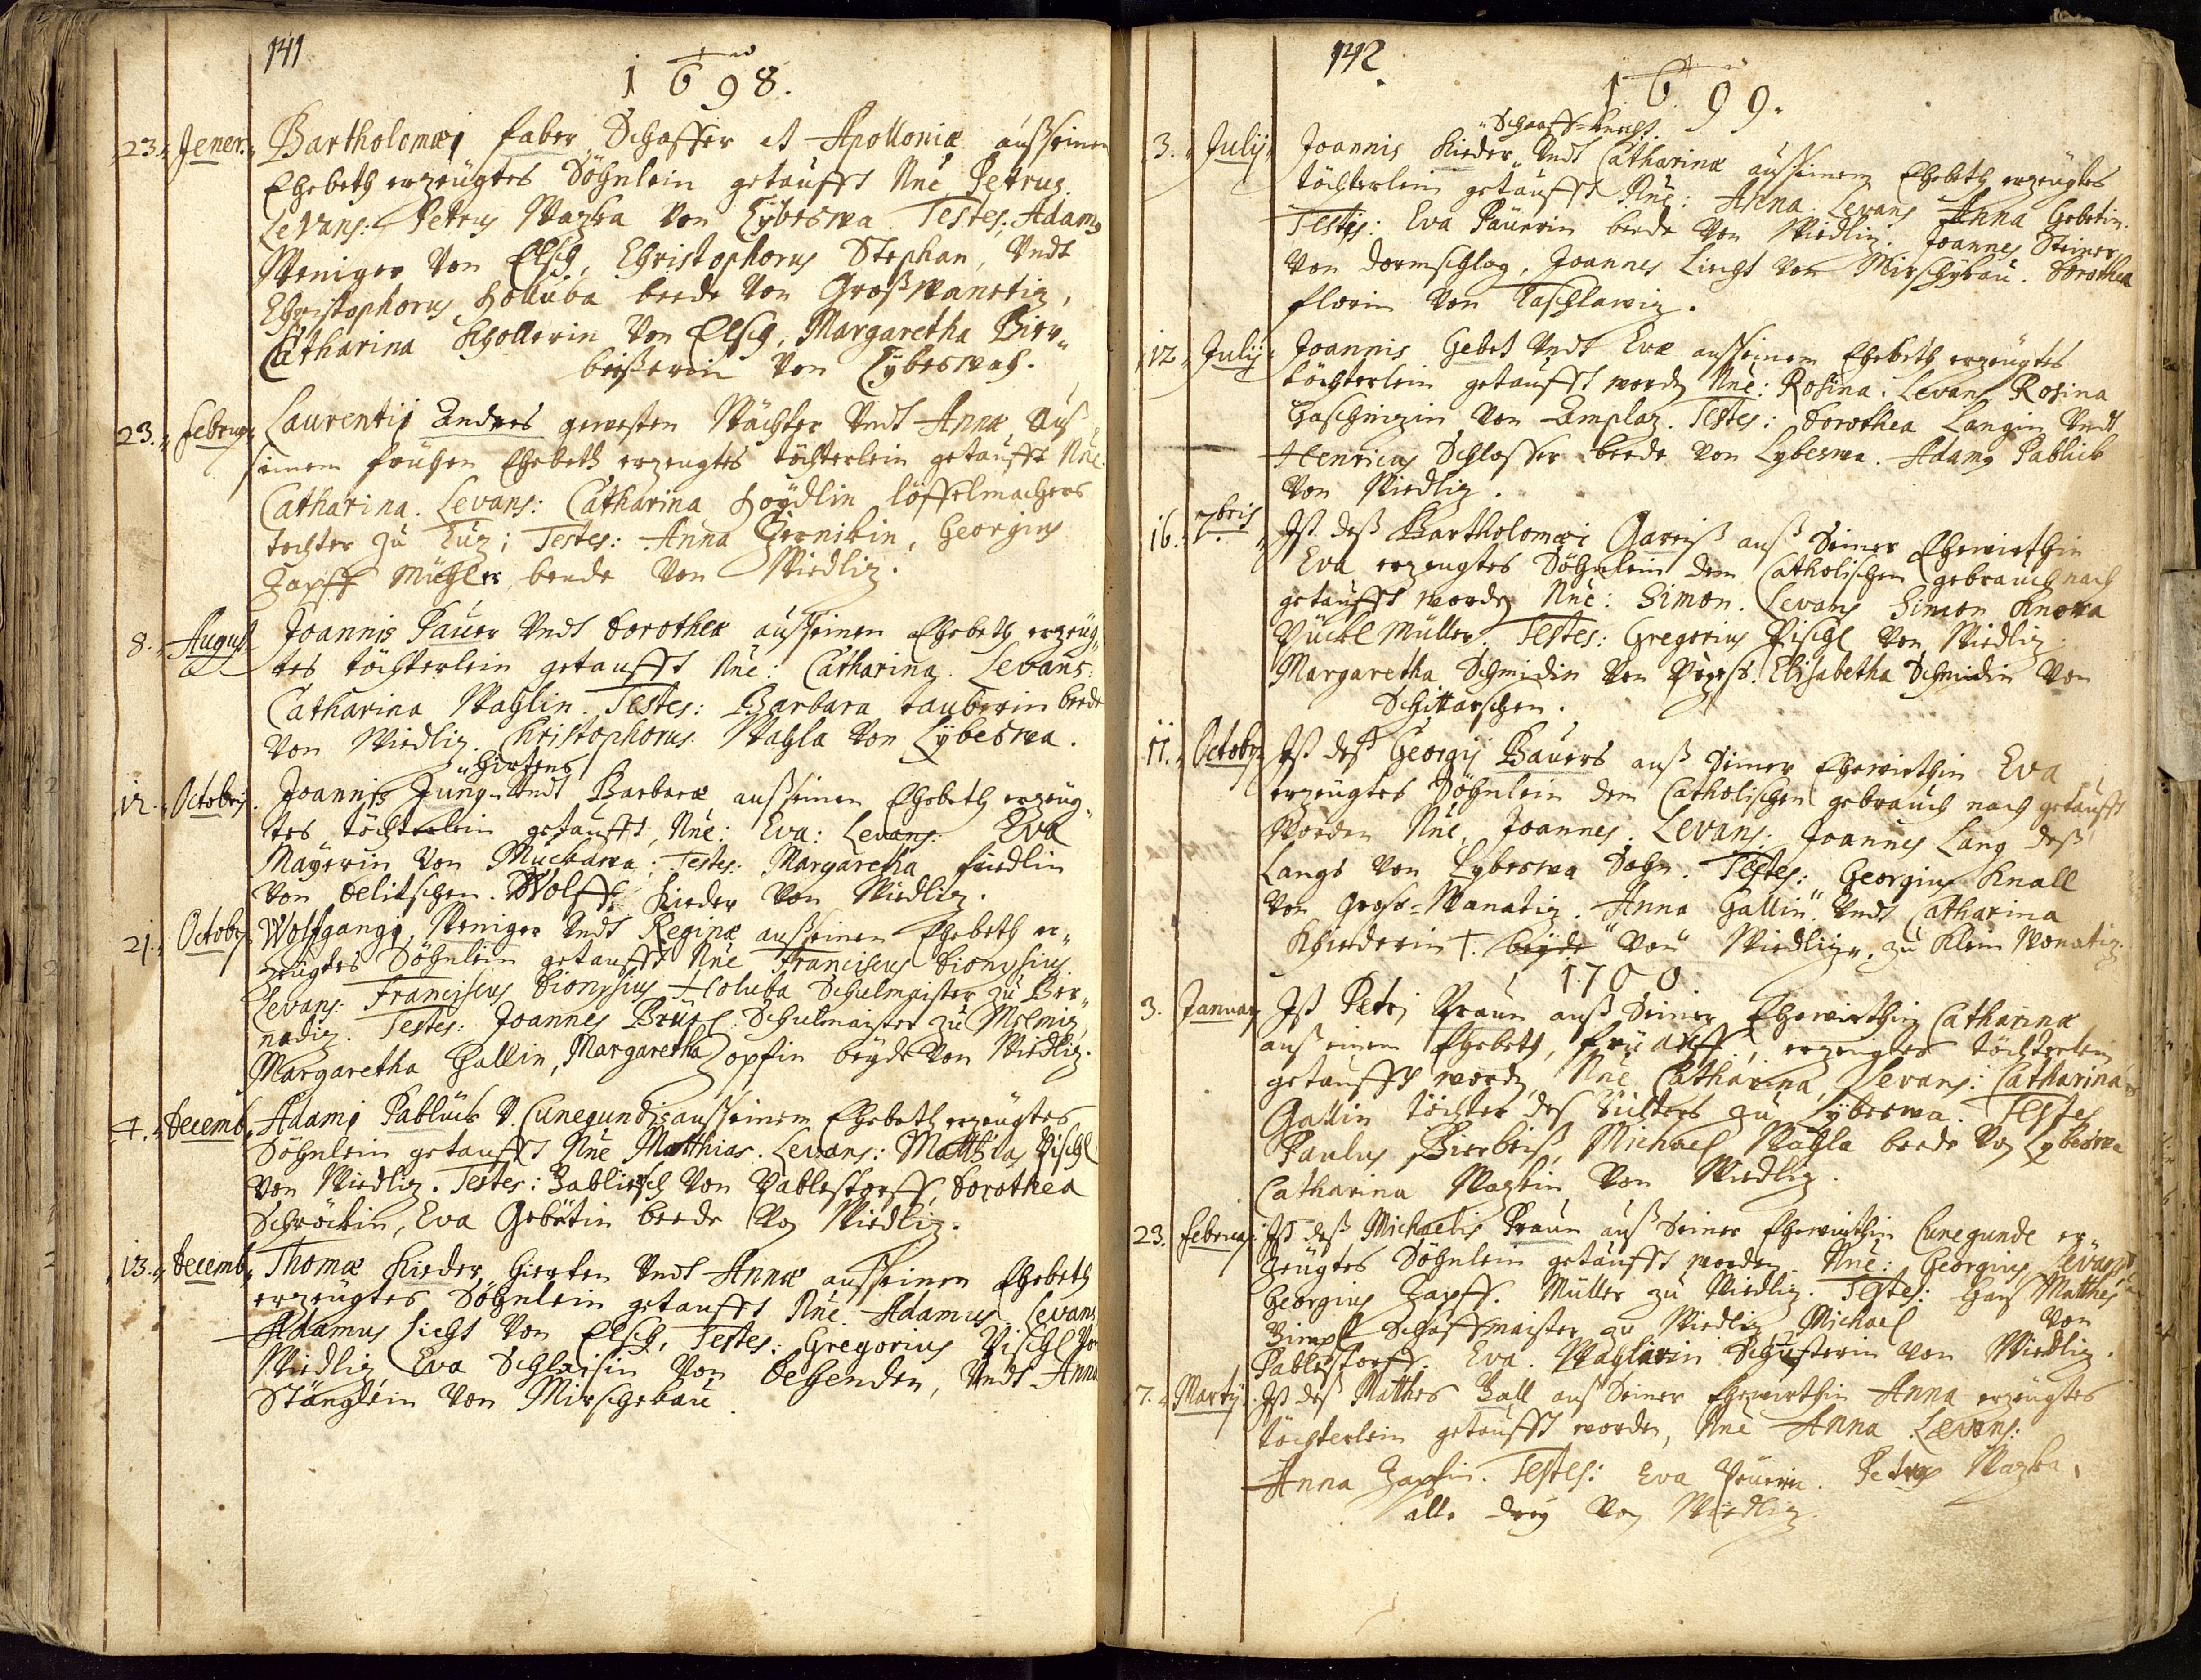 141
1698.
23. Jener. Bartholomæi Faber Schaffer et Apolloniæ auß seinen
Ehebeth erzeügtes Söhnlein getaufft Nñe Petrus.
Levans: Petrus Wazka von Lybeswa. Testes: Adamg
Weniger von Elsch, Christophorus Stephan, Vndt
Christophorus Holluba beede von Großwanetiz,
Catharina Schollerin von Elsch, Margaretha Bier„
beißerin von Lybeswah.
23. Februar Laurentij Endres gewesten Wächter Vndt Annæ Auß
seinem Ehebeth erzeugtes töchterlein getaufft Nñe
Catharina. Levans: Catharina löffelmachers
tochter zu; Testes: Anna Zernikin, Georgius
Zapff Mühler beede von Miedliz.
8. August Joannis Pauer Vndt Dorotheæ auß seinen Ehebeth erzeüg„
tes töchterlein getaufft Nñe: Catharina. Levans:
Catharina Wahlin. Testes: Barbara Tauberin beede
von Miedliz. Christophorus Wahla von Lybeswa.
Hirtens
12. Octobris. Joannis Jung Vndt Barbaræ auß seinen Ehebeth erzeüg„
tes töchterlein getaufft, Nñe: Eva: Levans: Eva
Mayerin von Muckawa; Testes: Margaretha
von. Wolff Kieder von Miedliz.
21. Octobr Wolfgangi Weniger Vndt Reginæ auß seinen Ehebeth er„
zeügtes Söhnlein getaufft Nñe Franciscus Dionysius
Levans: Franciscus Dionysius Holuba Schulmeister zu Ber„
nadiz. Testes: Joannes Schulmaister zu Melmiz,
Margaretha Gallin, Margaretha Zopfin beyde von Miedliz.
4. Decemb. Adami Pablick V. Cunegundis auß seinem Ehebeth erzeügtes
Söhnlein getaufft Nñe Matthias. Levans: Matthias Pischl
von Miedliz. Testes: von Pablestorff, Dorothea
Schröckin, Eva Gebetin beede von Miedliz.
13. Decemb. Thomæ Kieder Hierten Vndt Annæ auß seinen Ehebeth
erzeügtes Söhnlein getaufft Nñe Adamus Levans
Adamus Licht von Elsch, Testes: Gregorius Pischl von
Miedliz, Eva Schleisin von, Vndt Anna
Stänglein von Mirschekau.
142
1699.
Schaaff-Knecht.
3. Julij Joannis Kieder Vndt Catharinæ auß seinem Ehebeth erzeügtes
töchterlein getaufft Nñe: Anna. Levans Anna Gebetin.
Testes: Eva Päurin beede von Miedliz. Joannes Steiner
von Dornschlag, Joannes Licht von Mirschykau. Dorothea
Florin von Taschlawiz.
12. Julij Joannis Gebet Vndt Evæ auß seinem Ehebeth erzeügtes
töchterlein getaufft worden Nñe: Rosina. Levans Rosina
von Amplaz. Testes: Dorothea Langin Vndt
Henricus Schlosser beede von Lybeswa. Adamg Pablick
von Miedliz.
16. 7bris Ist deß Bartholomæi Gareiß auß Seiner Ehewirthin
Eva erzeugtes Söhnlein dem Catholischen gebrauch nach
getaufft worden Nñe: Simon. Levans Simon Knora
Müller, Testes: Gregorius Pischl von Miedliz.
Margaretha Schmidin von. Elisabetha Schmidin von
Schittarschen.
11. Octobr. Ist deß Georgij Bauers auß Seiner Ehewirthin Eva
erzeügtes Söhnlein dem Catholischen gebrauch nach getaufft
Worden Nñe, Joannes. Levans: Joannes Lang deß
Langs von Lybeswa Sohn. Testes: Georgius Knall
von Groß-Wanatiz. Anna Gallin Vndt Catharina
Khiederin †. beyde von Miedliz. zu Klein Wonatiz.
1700
3. Januar Ist Petri Praun auß Seiner Ehewirthin Catharinæ
auß einem Ehebeth, erzeugtes töchterlein
getaufft worden, Nñe Catharina, Levans: Catharina
Gallin töchter des Richters zu Lybeswa. Testes
Paulus Bierbeiß, Michael Wahla beede von Lybeswa
Catharina Wazkin von Miedliz.
23. Februar. Ist deß Michaelis Praun auß Seiner Ehewirthin Cunegunde er„
zeügtes Söhnlein getaufft worden. Nñe: Georgius Levans
Georgius Zapff. Müller zu Miedliz. Testes: Hans Matthes
Schaffmaister zu Miedliz Michael von
Pablestorff. Eva. Wahlarin Schusterin von Miedliz.
7. Martij. Ist deß Matthes Ball auß Seiner Ehewirthin Anna erzeügtes
töchterlein getaufft worden, Nñe Anna Levans:
Anna Zapfin. Testes: Eva Peurin. Petrus Wazka,
alle drey von Miedliz